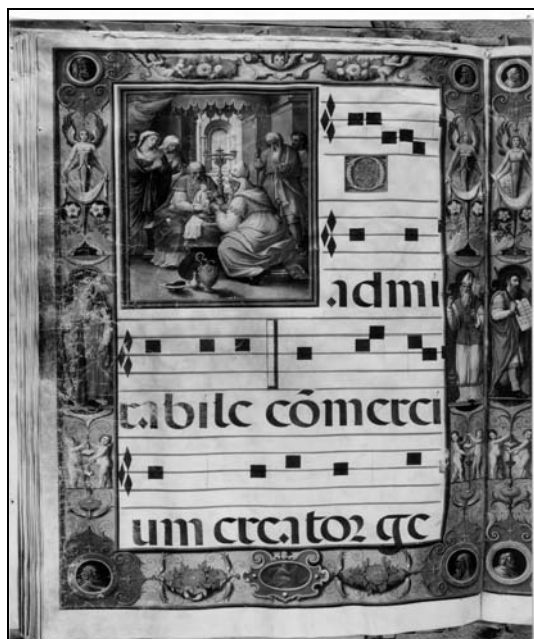 O
admi
rabile cōmerci
um creator ge